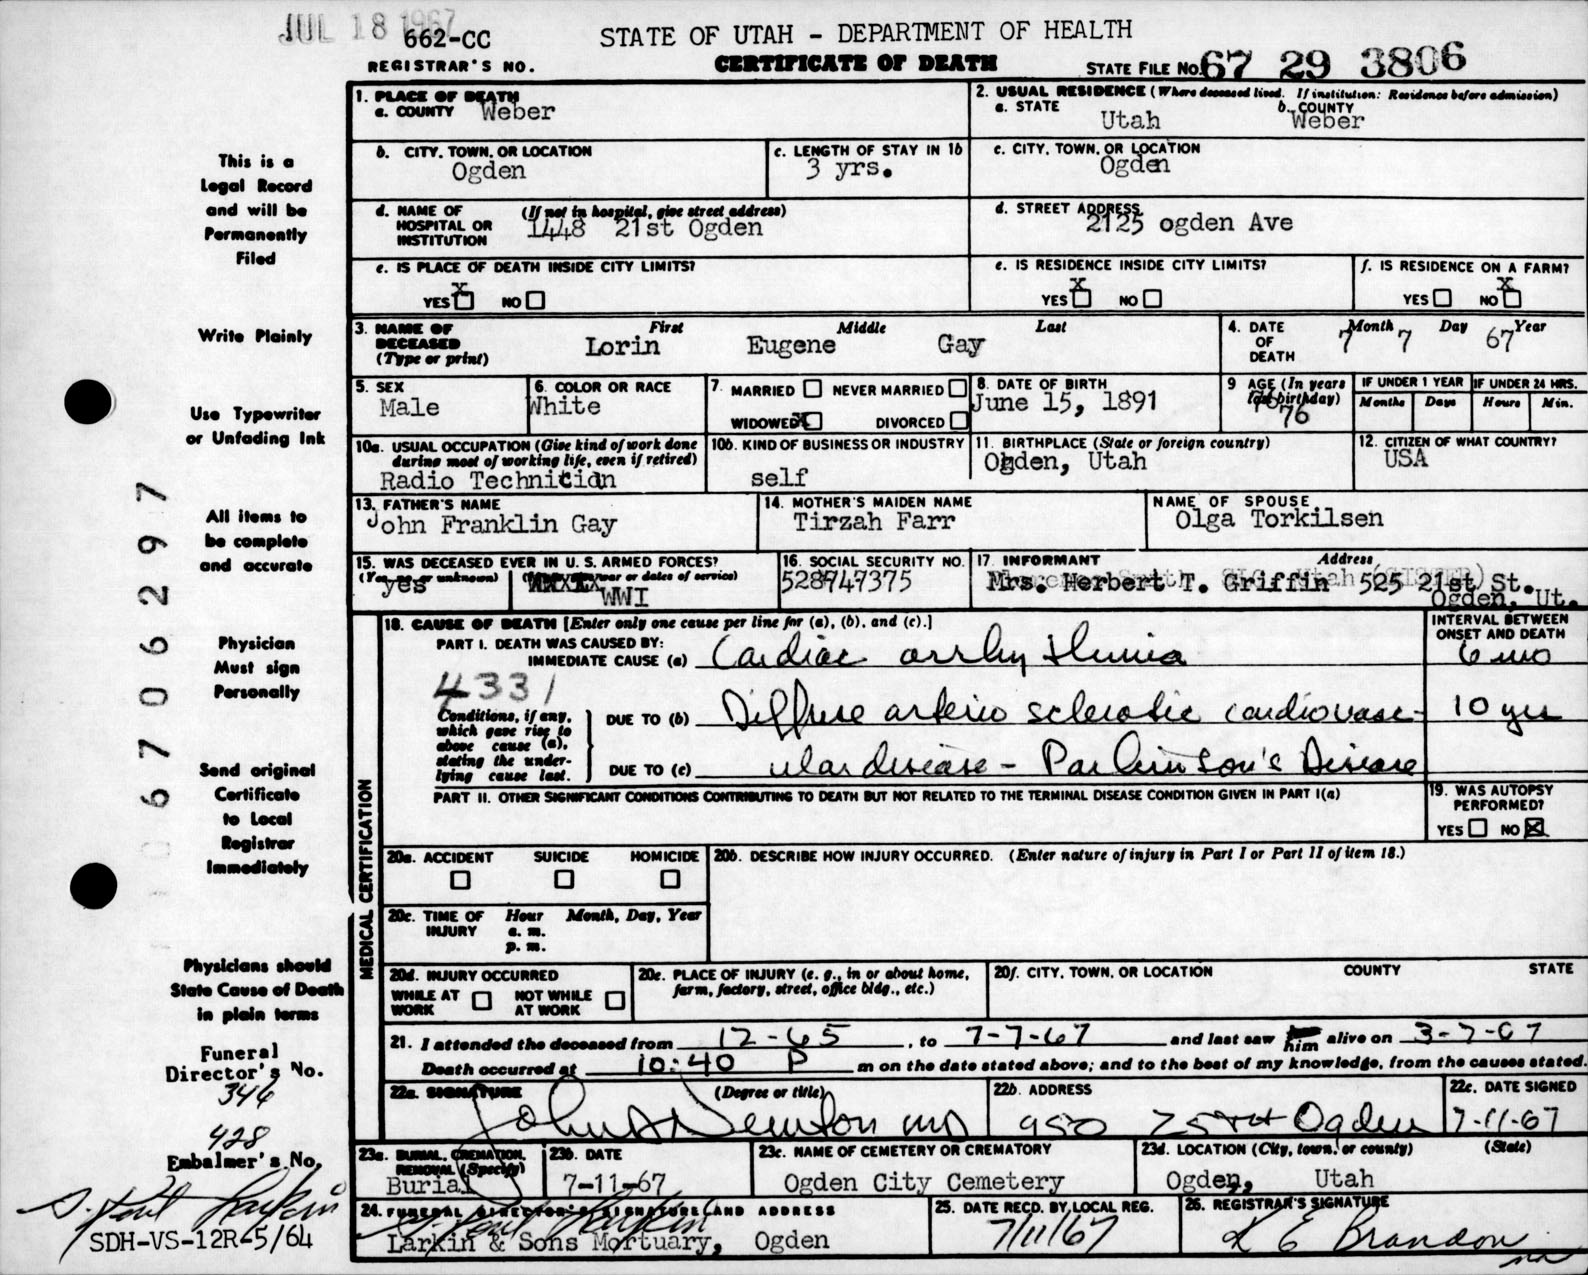 JUL 18 1967
662-CC
REGISTRAR'S NO.
STATE OF UTAH - DEPARTMENT OF HEALTH
CERTIFICATE OF DEATH
STATE FILE NO. 67 29 3806
This is a
Legal Record
and will be
Permanently
Filed
Write Plainly
Use Typewriter
or Unfading Ink
All items to
be complete
and accurate
Physician
Must sign
Personally
Send original
Certificate
to Local
Registrar
Immediately
Physicians should
State Cause of Death
in plain terms
Funeral
Director's No.
346
428
Embalmer's No.
S. Paul Larkin
SDH-VS-12R-5/64
6706297
1. PLACE OF DEATH
a. COUNTY Weber
2. USUAL RESIDENCE (Where deceased lived. If institution: Residence before admission)
a. STATE Utah b. COUNTY Weber
b. CITY, TOWN, OR LOCATION Ogden
c. LENGTH OF STAY IN 1b 3 yrs.
c. CITY, TOWN, OR LOCATION Ogden
d. NAME OF HOSPITAL OR INSTITUTION (If not in hospital, give street address)
1448 21st Ogden
d. STREET ADDRESS 2125 ogden Ave
e. IS PLACE OF DEATH INSIDE CITY LIMITS?
YES X NO
e. IS RESIDENCE INSIDE CITY LIMITS?
YES X NO
f. IS RESIDENCE ON A FARM?
YES NO X
3. NAME OF DECEASED (Type or print)
First Middle Last
Lorin Eugene Gay
4. DATE OF DEATH
Month Day Year
7 7 67
5. SEX
Male
6. COLOR OR RACE
White
7. MARRIED NEVER MARRIED
WIDOWED X DIVORCED
8. DATE OF BIRTH
June 15, 1891
9 AGE (In years last birthday)
76
IF UNDER 1 YEAR
Months Days
IF UNDER 24 HRS.
Hours Min.
10a. USUAL OCCUPATION (Give kind of work done during most of working life, even if retired)
Radio Technician
10b. KIND OF BUSINESS OR INDUSTRY
self
11. BIRTHPLACE (State or foreign country)
Ogden, Utah
12. CITIZEN OF WHAT COUNTRY?
USA
13. FATHER'S NAME
John Franklin Gay
14. MOTHER'S MAIDEN NAME
Tirzah Farr
NAME OF SPOUSE
Olga Torkilsen
15. WAS DECEASED EVER IN U. S. ARMED FORCES?
(Yes, no, or unknown) (If yes, give war or dates of service)
yes WWI
16. SOCIAL SECURITY NO.
528947375
17. INFORMANT Address
Mrs. Herbert T. Griffin 525 21st St.
Ogden, Ut.
MEDICAL CERTIFICATION
18. CAUSE OF DEATH [Enter only one cause per line for (a), (b), and (c).]
INTERVAL BETWEEN ONSET AND DEATH
PART I. DEATH WAS CAUSED BY:
IMMEDIATE CAUSE (a) Cardiac arrhythmia 6 mo
4331
Conditions, if any, which gave rise to above cause (a), stating the underlying cause last.
DUE TO (b) Diffuse arterio sclerotic cardiovasc- 10 yrs
DUE TO (c) ular disease - Parkinson's Disease
PART II. OTHER SIGNIFICANT CONDITIONS CONTRIBUTING TO DEATH BUT NOT RELATED TO THE TERMINAL DISEASE CONDITION GIVEN IN PART I(a)
19. WAS AUTOPSY PERFORMED?
YES NO X
20a. ACCIDENT SUICIDE HOMICIDE
20b. DESCRIBE HOW INJURY OCCURRED. (Enter nature of injury in Part I or Part II of item 18.)
20c. TIME OF INJURY Hour Month, Day, Year
a. m.
p. m.
20d. INJURY OCCURRED
WHILE AT WORK NOT WHILE AT WORK
20e. PLACE OF INJURY (e. g., in or about home, farm, factory, street, office bldg., etc.)
20f. CITY, TOWN, OR LOCATION COUNTY STATE
21. I attended the deceased from 12-65, to 7-7-67 and last saw him alive on 3-7-67
Death occurred at 10:40 P m on the date stated above; and to the best of my knowledge, from the causes stated.
22a. SIGNATURE (Degree or title)
John A Newton MD
22b. ADDRESS
950 25TH Ogden
22c. DATE SIGNED
7-11-67
23a. BURIAL, CREMATION, REMOVAL (Specify)
Burial
23b. DATE
7-11-67
23c. NAME OF CEMETERY OR CREMATORY
Ogden City Cemetery
23d. LOCATION (City, town, or county) (State)
Ogden, Utah
24. FUNERAL DIRECTOR'S SIGNATURE AND ADDRESS
S. Paul Larkin
Larkin & Sons Mortuary, Ogden
25. DATE RECD. BY LOCAL REG.
7/11/67
26. REGISTRAR'S SIGNATURE
K E Brandon